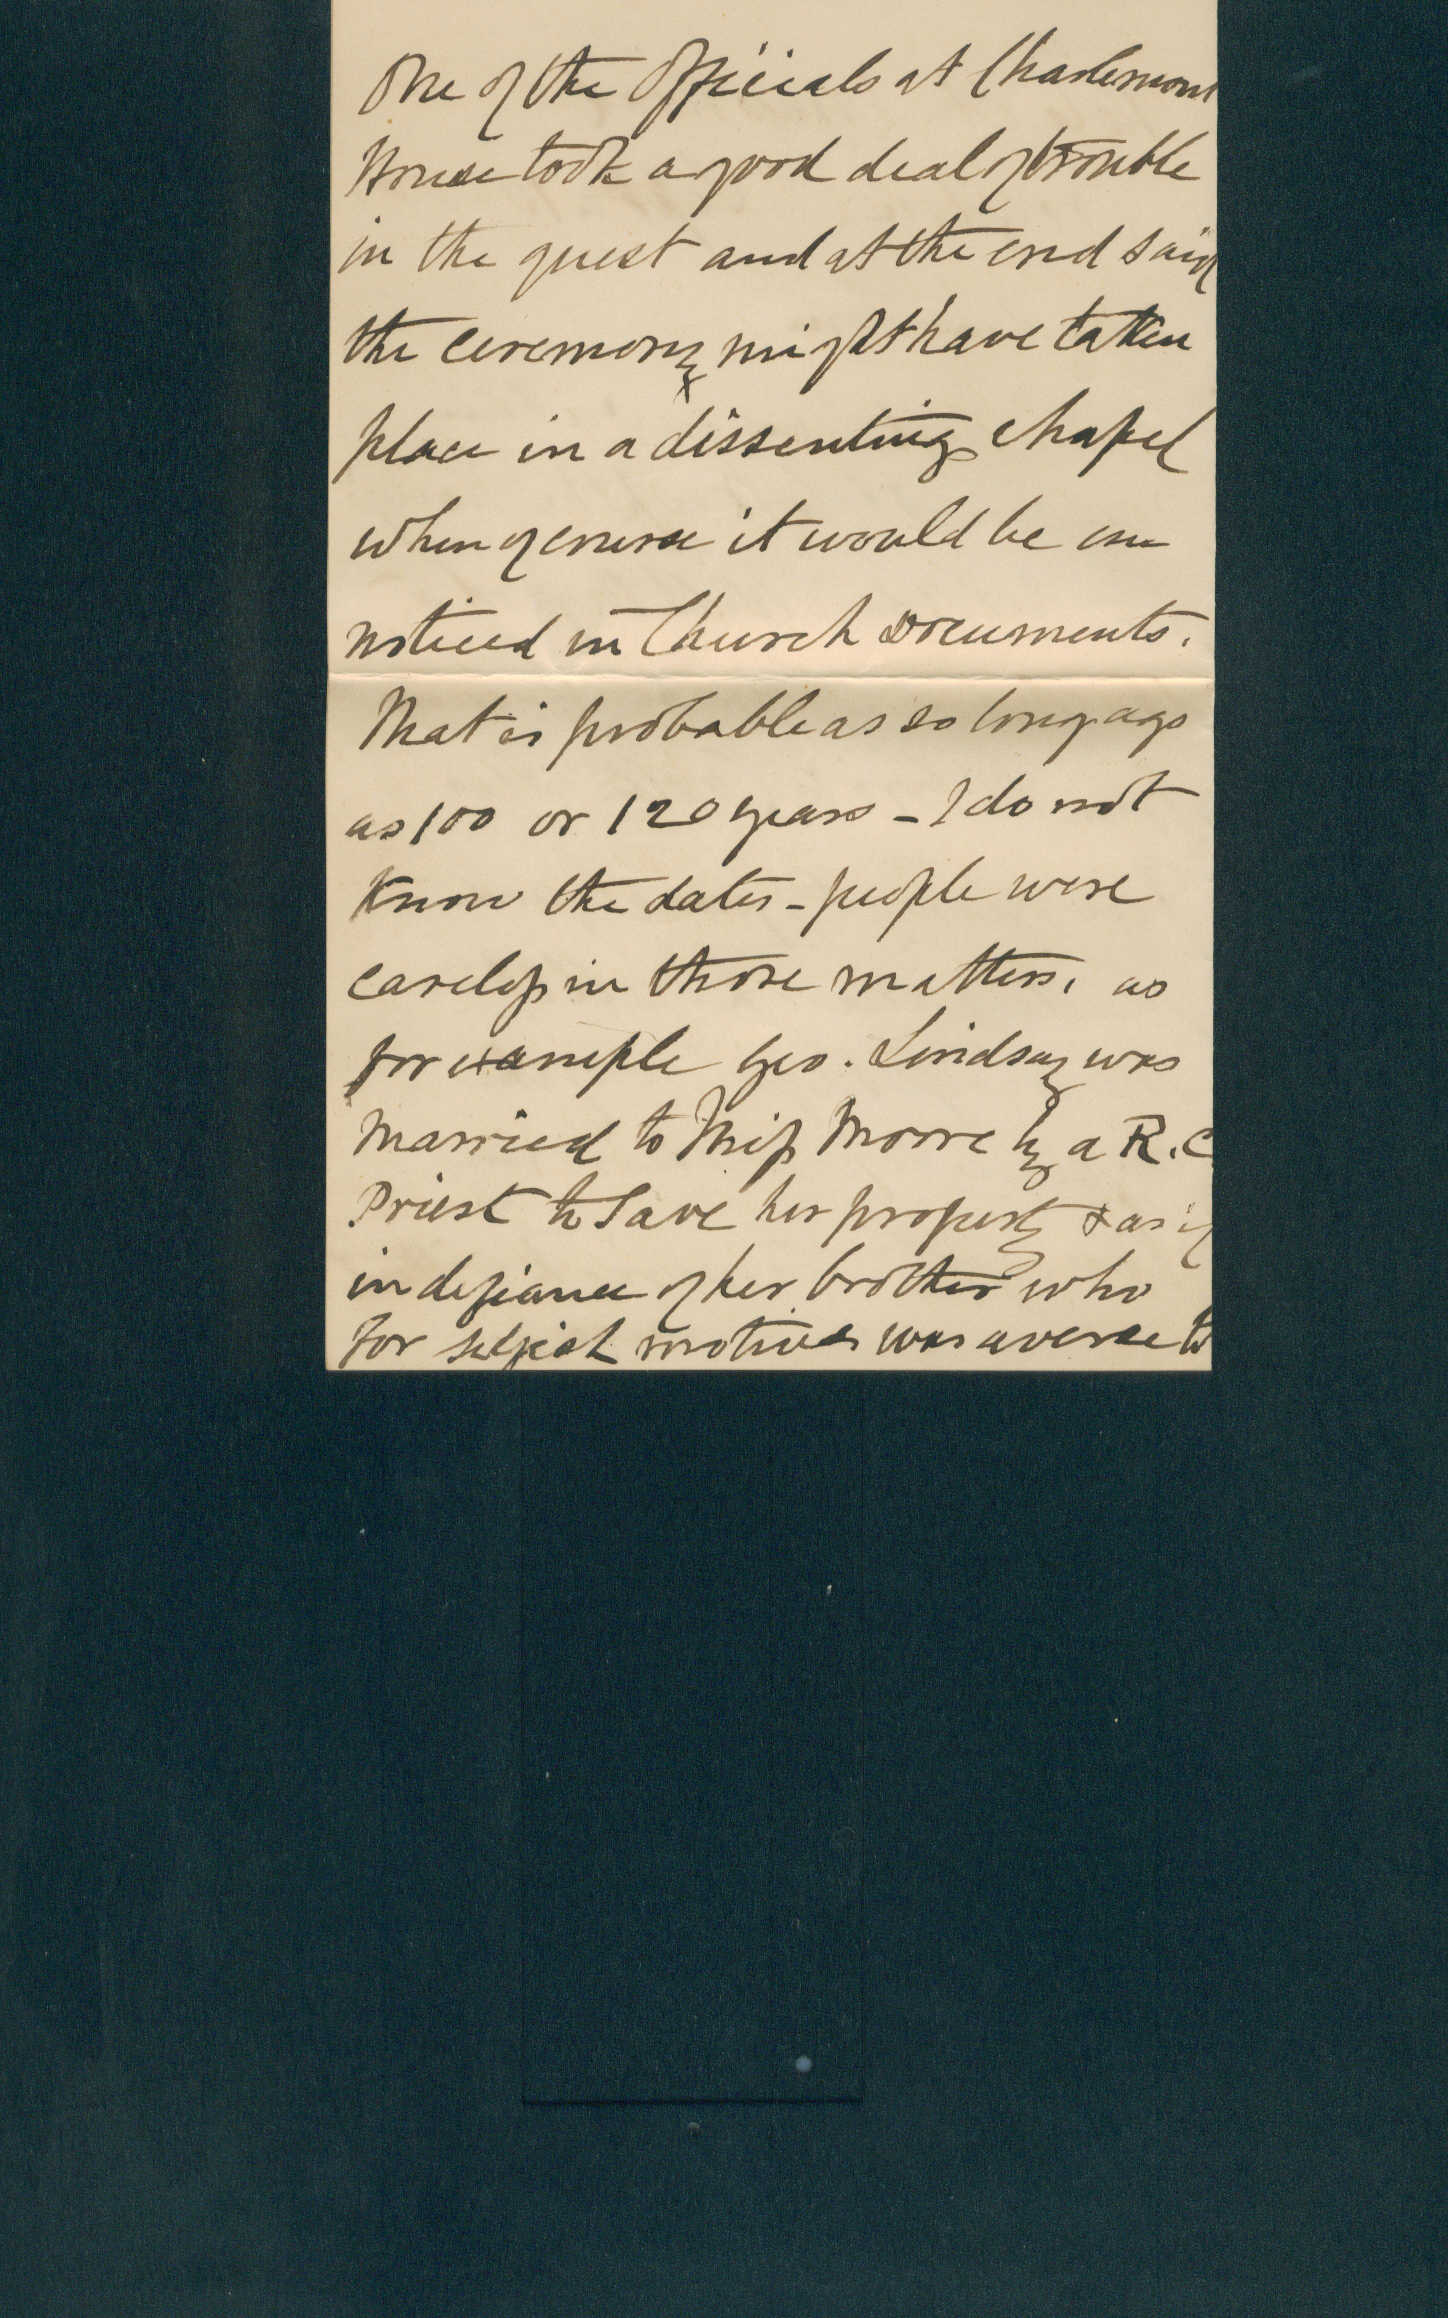 One of the Officials at Charlemont
House took a good deal of trouble
in the quest and at the end said
the ceremony might have taken
x
place in a dissenting chapel
when of course it would be un
noticed in Church Documents.
That is probable as so long ago
as 100 or 120 years - I do not
know the dates - people were
careless in those matters, as
for example Geo. Lindsay was
Married to Miss Moore by a R.C.
Priest to save her property & as if
in defiance of her brother who
for selfish motives was averse to